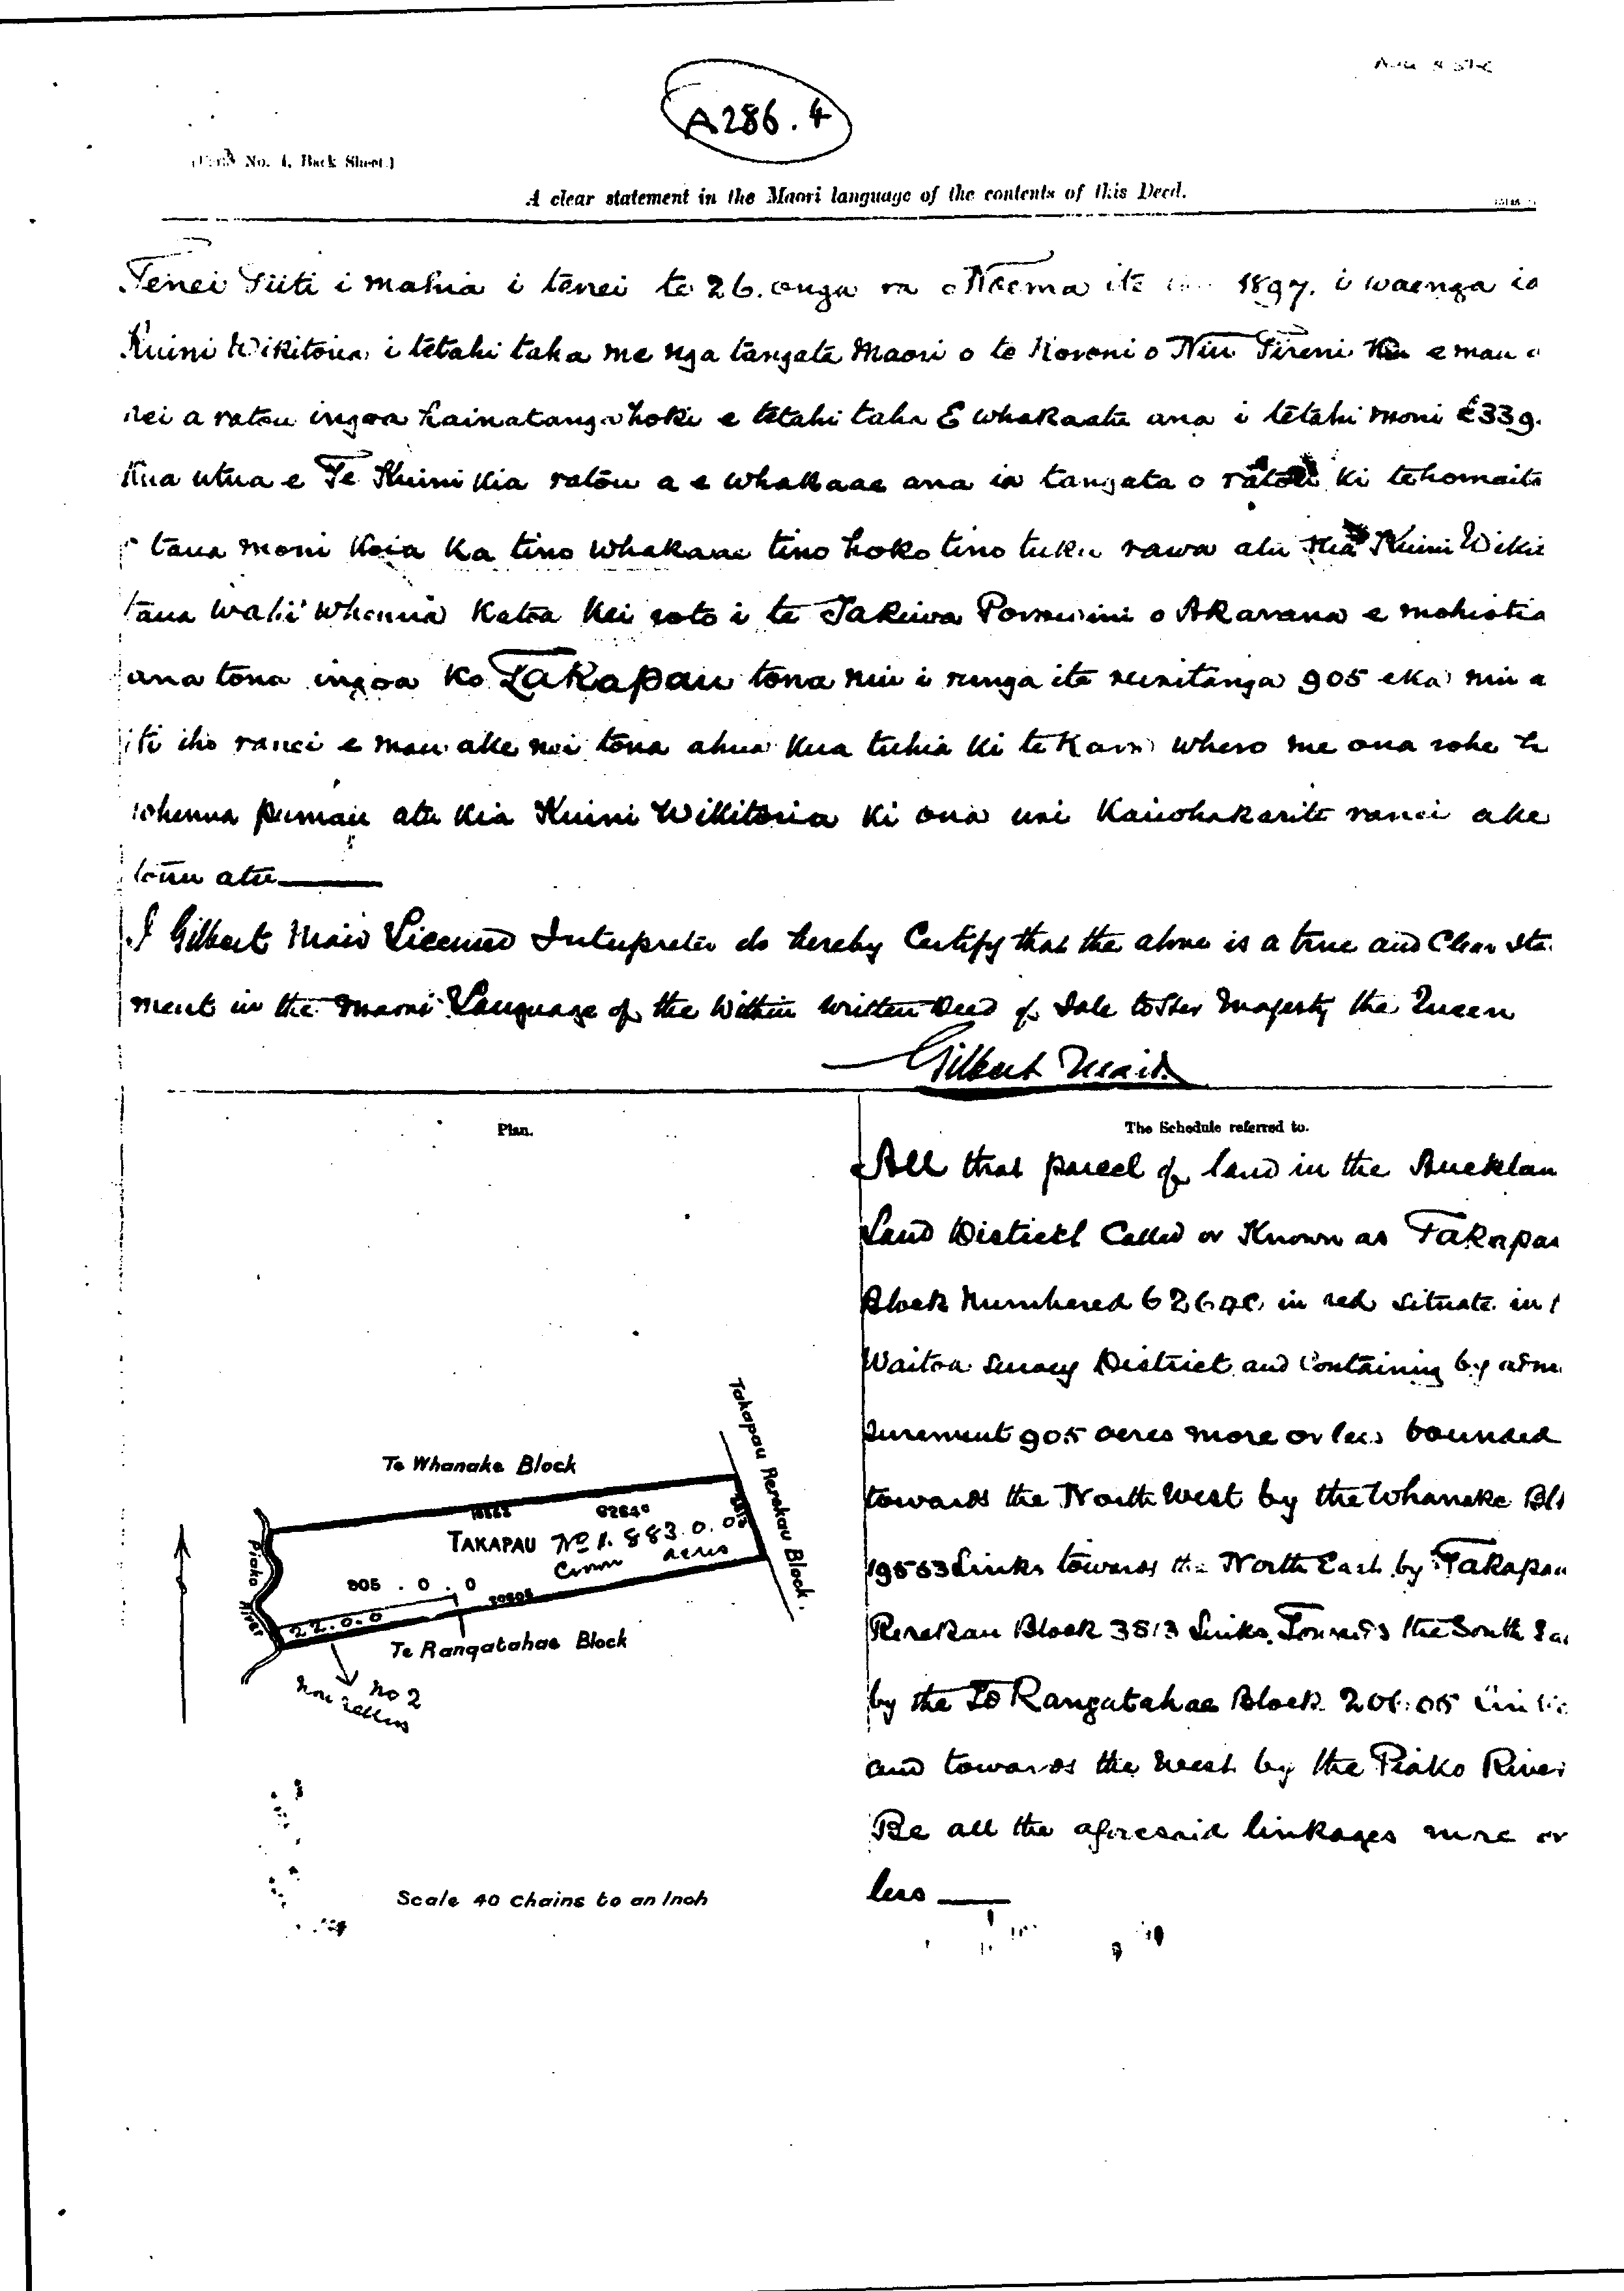 A286.4
No. 4, Back Sheet.)
A clear statement in the Maori language of the contents of this Deed.
Tenei Tiiti i mahia i tenei te 26. onga ra o Noema ite 1897. i waenga ia
Kuini Wikitoria i tetahi taha me nga tangata Maori o te Koroni o Niu Tireni e mau
nei a ratou ingoa hainatanga hoki e tetahi taha E whakaatu ana i tetahi moni £339.
Kua utua e Te Kuini kia ratou a e whakaae ana ia tangata o ratou ki tehomaita
taua moni Koia Ka tino whakaae tino hoko tino tuku rawa atu Kia Kuini Wikit
taua wahi whenua Katoa Kei roto i te Takiwa Porowini o Akarana e mohiotia
ana tona ingoa Ko Takapau tona nui i runga ite ruritanga 905 eka nui a
iti iho ranei e mau ake nei tona ahua Kua tuhia ki te Karu whero me ona rohe
whenua pumau atu kia Kuini Wikitoria ki ona uri Kaiwhakarite ranei ake
tonu atu
I Gilbert Mair Licensed Interpreter do hereby Certify that the above is a true and Clear State
ment in the Maori Language of the Within written Deed of Sale to Her Majesty the Queen
Gilbert Mair
Plan.
The Schedule referred to.
All that parcel of land in the Aucklan
Land District Called or Known as Takapau
Block Numbered in red situate in
Waitoa Survey District and Containing by adme
surement 905 acres more or less bounded
towards the North West by the Whanake Blo
19563 Links towards the North East by Takapau
Rerekau Block 3813 Links. Towards the South Ea
by the Te Rangatahae Block 20605 Links
and towards the West by the Piako River
Be all the aforesaid linkages more or
less
Te Whanake Block
Takapau Rerekau Block.
TAKAPAU No 1. 883.0.0
Crown acres
905 . 0 . 0
20605
22.0.0
Piako River
Te Rangatahae Block
No 2
Non sellers
Scale 40 Chains to an Inch